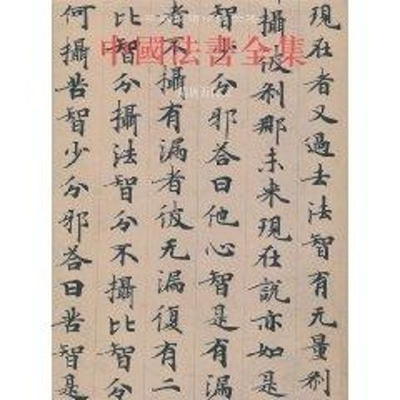 中國法書全集
現在者又過去法智有无量刹
攝彼刹那未来現在説亦如是
智少分邪答曰他心智是有漏
者不攝有漏者彼无漏復有二
比智分攝法智分不攝比智分
何攝苦智少分邪答曰苦智是